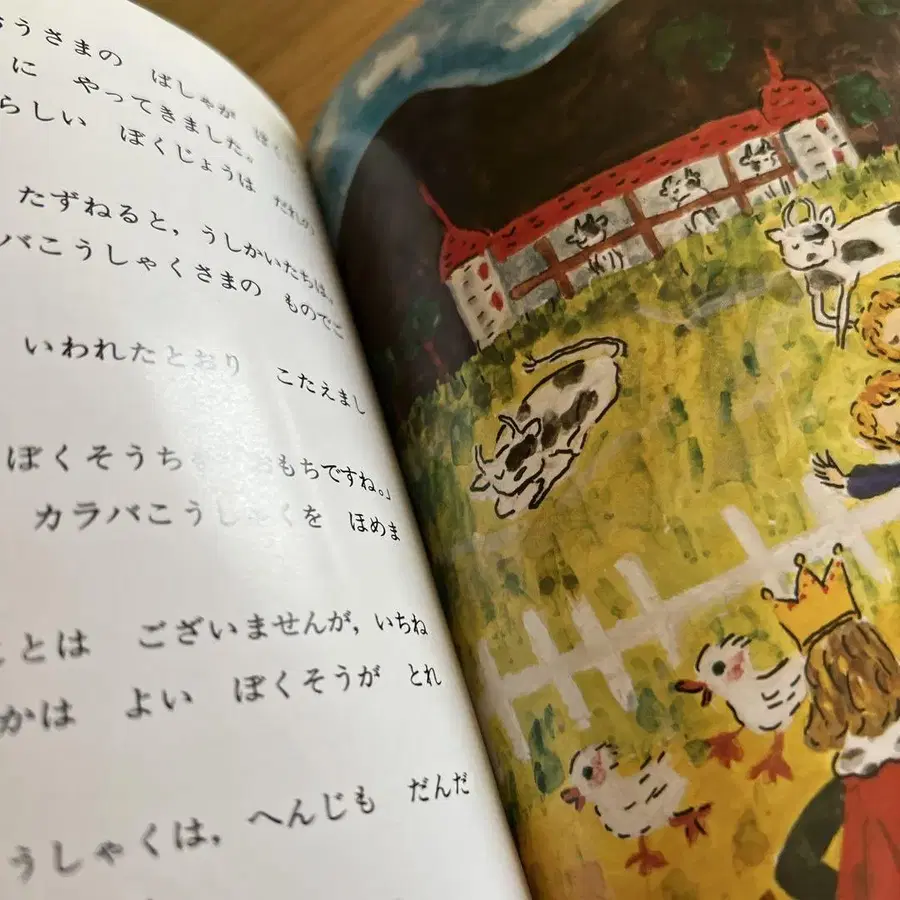 おうさまの ばしゃが
に やってきました。
らしい ぼくじょうは だれの
たずねると，うしかいたちは，
バこうしゃくさまの ものでご
いわれたとおり こたえまし
ぼくそうち おもちですね。」
カラバこうしゃくを ほめま
ことは ございませんが，いちね
かは よい ぼくそうが とれ
うしゃくは，へんじも だんだ